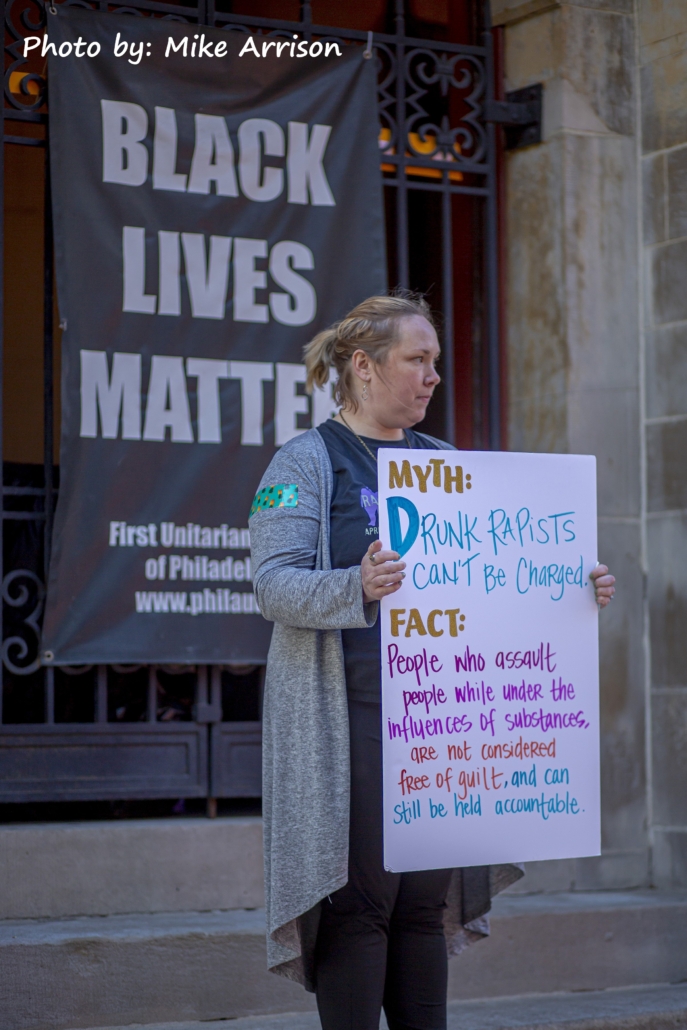 Photo by: Mike Arrison
BLACK
LIVES
MATTE
First Unitarian
of Philadel
www.philau
MYTH:
DRUNK RAPISTS
CAN'T Be CHARGED.
FACT:
People who assault
people while under the
influences of substances,
are not considered
free of guilt, and can
still be held accountable.